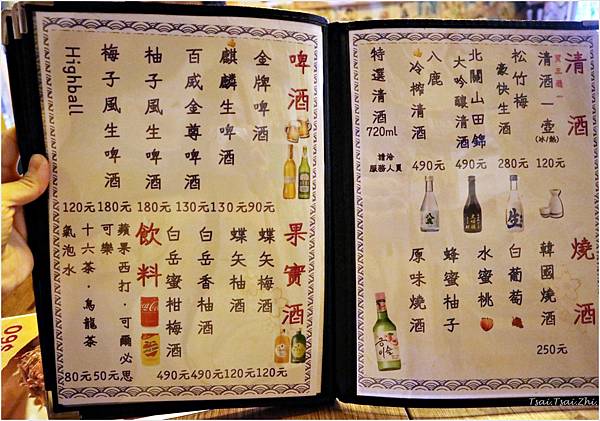 清酒
買五送一
清酒一壺(冰/熱)
120元
松竹梅
豪快生酒
280元
北關山田錦
大吟釀清酒
490元
八鹿
冷搾清酒
490元
特選清酒
720ml
請洽
服務人員
燒酒
韓國燒酒
白葡萄
水蜜桃
蜂蜜柚子
原味燒酒
250元
啤酒
金牌啤酒
90元
麒麟生啤酒
130元
百威金尊啤酒
130元
柚子風生啤酒
180元
梅子風生啤酒
180元
Highball
120元
果實酒
蝶矢梅酒
120元
蝶矢柚酒
120元
白岳香柚酒
490元
白岳蜜柑梅酒
490元
飲料
蘋果西打．可爾必思
可樂
50元
十六茶．烏龍茶
氣泡水
80元
Tsai.Tsai.Zhi.